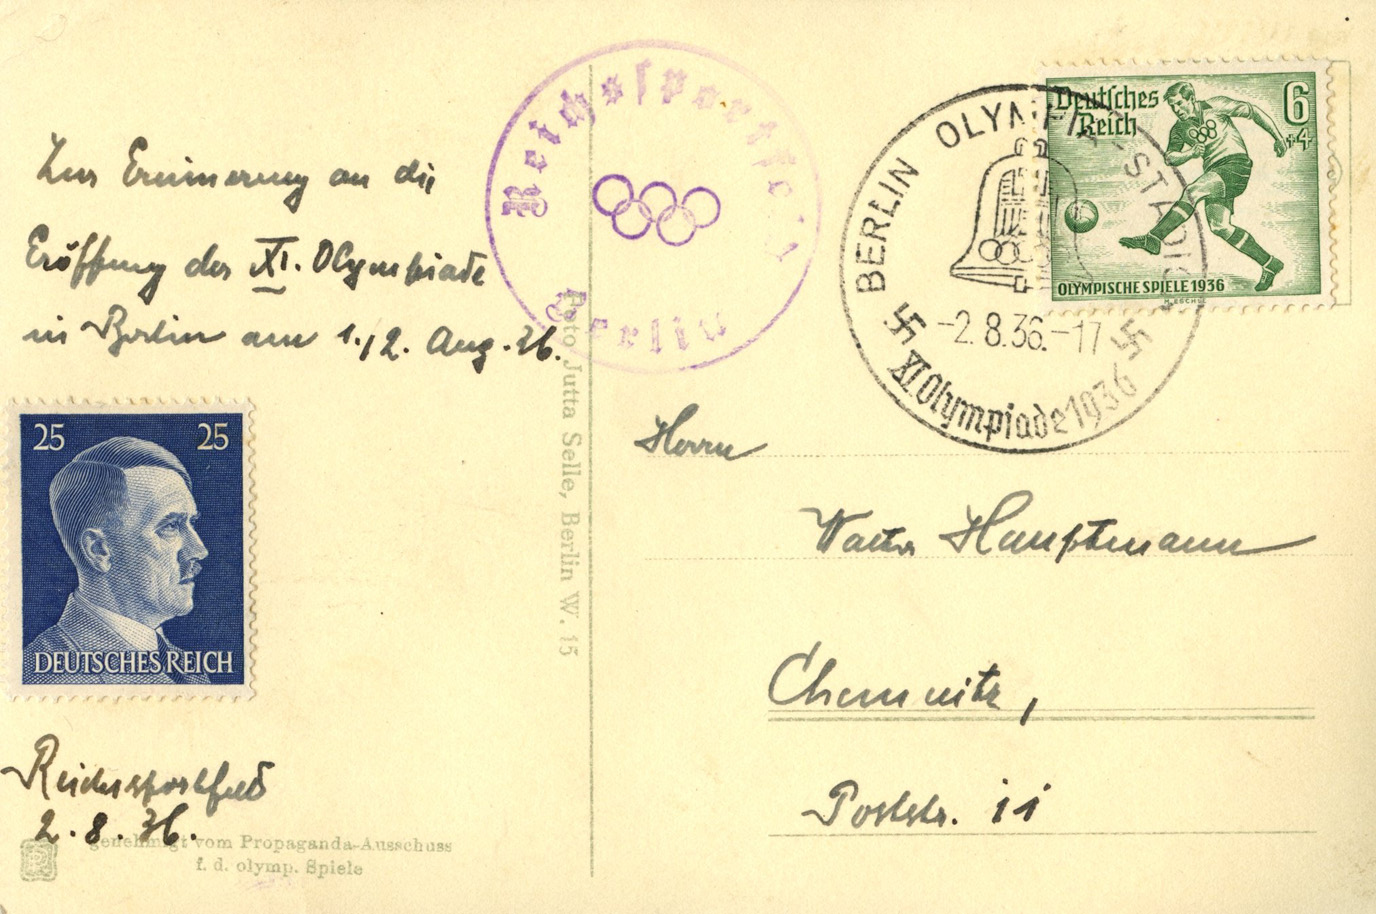 Zur Erinnerung an die
Eröffnung der XI. Olympiade
in Berlin am 1./2. Aug. 36.
25 25
DEUTSCHES REICH
Reichssportfeld
2.8.36.
genehmigt vom Propaganda-Ausschuss
f. d. olymp. Spiele
Foto Jutta Selle, Berlin W. 15
Reichssportfeld
Berlin
BERLIN OLYMPIA-STADION
-2.8.36.-17
XI. Olympiade 1936
Deutsches
Reich
6
+4
OLYMPISCHE SPIELE 1936
M. ESCHLE
Herrn
Walter Hauptmann
Chemnitz,
Poststr. 11